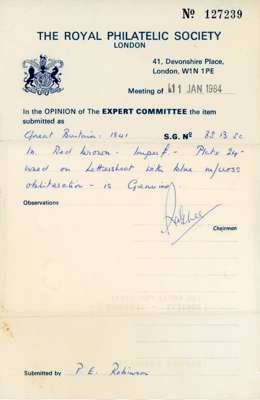 Nº 127239
THE ROYAL PHILATELIC SOCIETY
LONDON
41, Devonshire Place,
London, W1N 1PE
Meeting of 11 JAN 1984
In the OPINION of The EXPERT COMMITTEE the item
submitted as
Great Britain: 1841 S.G. Nº B2
1d. Red brown - Imperf - Plate 24 -
used on Lettersheet with blue m/cross
obliteration - is Genuine.
Observations
Chairman
Submitted by P. E. Robinson